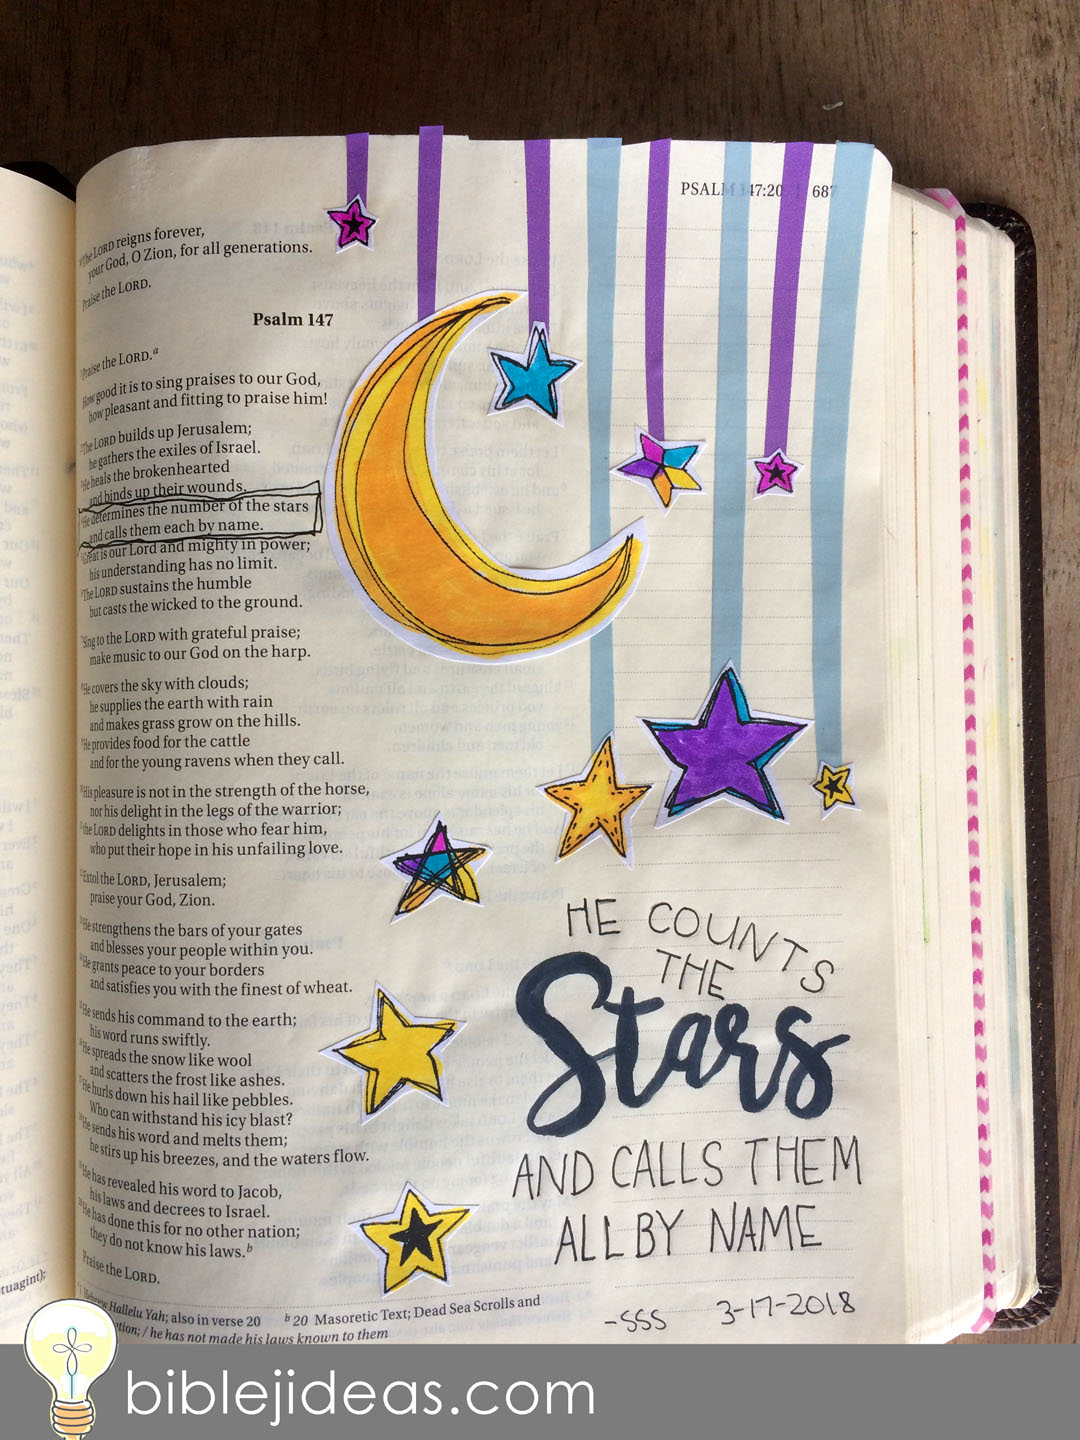 PSALM 147:20 687
The LORD reigns forever,
your God, O Zion, for all generations.
Praise the LORD.
Psalm 147
Praise the LORD.a
How good it is to sing praises to our God,
how pleasant and fitting to praise him!
The LORD builds up Jerusalem;
he gathers the exiles of Israel.
He heals the brokenhearted
and binds up their wounds.
He determines the number of the stars
and calls them each by name.
Great is our Lord and mighty in power;
his understanding has no limit.
The LORD sustains the humble
but casts the wicked to the ground.
Sing to the LORD with grateful praise;
make music to our God on the harp.
He covers the sky with clouds;
he supplies the earth with rain
and makes grass grow on the hills.
He provides food for the cattle
and for the young ravens when they call.
His pleasure is not in the strength of the horse,
nor his delight in the legs of the warrior;
the LORD delights in those who fear him,
who put their hope in his unfailing love.
Extol the LORD, Jerusalem;
praise your God, Zion.
He strengthens the bars of your gates
and blesses your people within you.
He grants peace to your borders
and satisfies you with the finest of wheat.
He sends his command to the earth;
his word runs swiftly.
He spreads the snow like wool
and scatters the frost like ashes.
He hurls down his hail like pebbles.
Who can withstand his icy blast?
He sends his word and melts them;
he stirs up his breezes, and the waters flow.
He has revealed his word to Jacob,
his laws and decrees to Israel.
He has done this for no other nation;
they do not know his laws.b
Praise the LORD.
Hebrew Hallelu Yah; also in verse 20 b 20 Masoretic Text; Dead Sea Scrolls and
/ he has not made his laws known to them
HE COUNTS
THE
Stars
AND CALLS THEM
ALL BY NAME
-SSS 3-17-2018
biblejideas.com